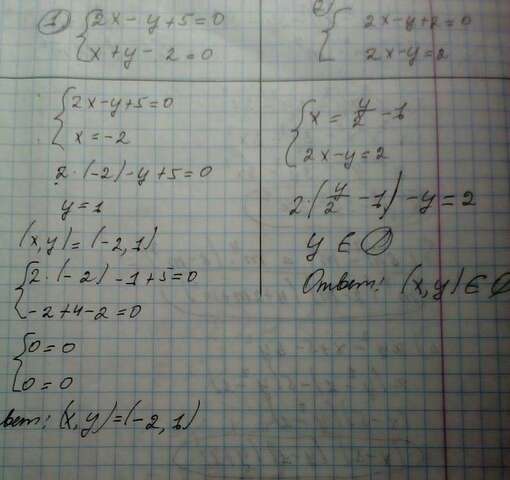 1) { 2x - y + 5 = 0
x + y - 2 = 0
{ 2x - y + 5 = 0
x = -2
2 · (-2) - y + 5 = 0
y = 1
(x, y) = (-2, 1)
{ 2 · (-2) - 1 + 5 = 0
-2 + 4 - 2 = 0
{ 0 = 0
0 = 0
вет: (x, y) = (-2, 1)
{ 2x - y + 2 = 0
2x - y = 2
{ x = y/2 - 1
2x - y = 2
2 · (y/2 - 1) - y = 2
y ∈ ∅
Ответ: (x, y) ∈ ∅